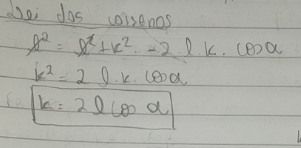 Lei dos cossenos
l² = l² + k² - 2 l . k . cos α
k² = 2 l . k . cos α
k = 2 l cos α